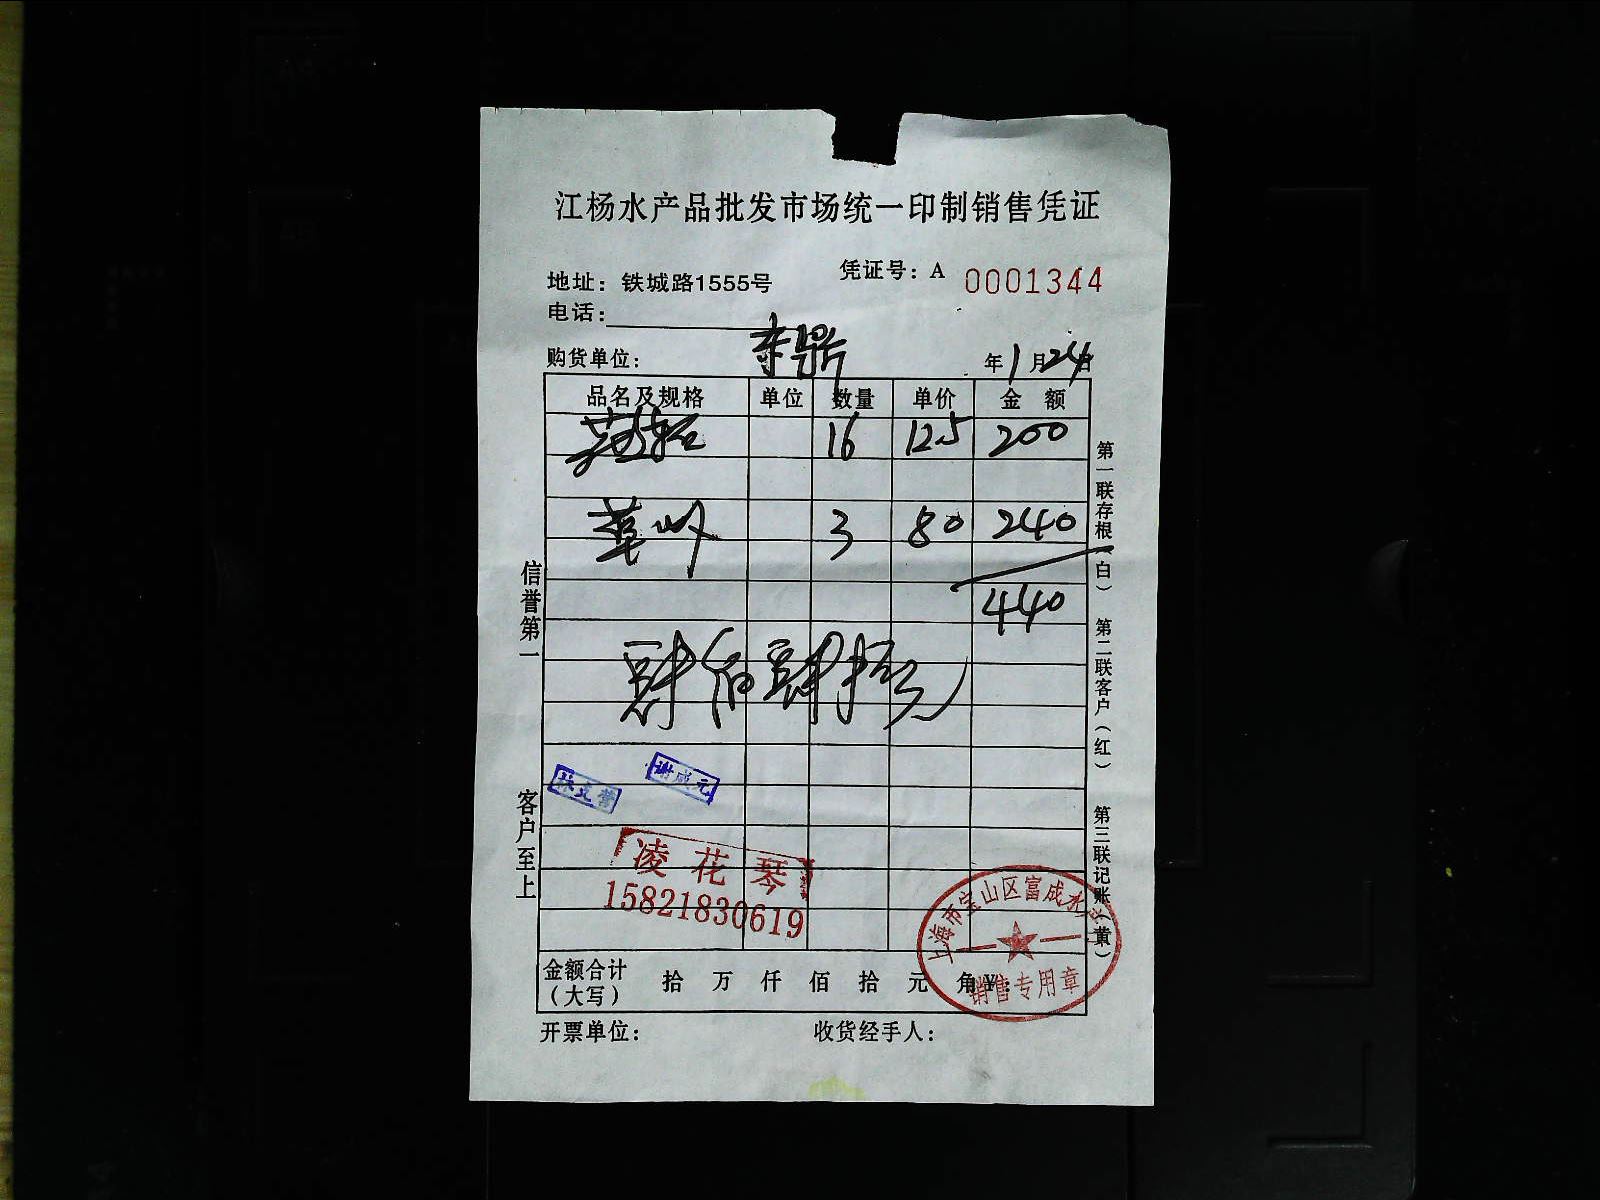 江杨水产品批发市场统一印制销售凭证
凭证号：A 0001344
地址：铁城路1555号
电话：
购货单位： 东鼎 年1月24日
品名及规格 单位 数量 单价 金额
16 12.5 200
草 3 80 240
440
肆佰肆拾元
谢成元
凌花琴
15821830619
上海市宝山区富成水产
销售专用章
金额合计（大写） 拾 万 仟 佰 拾 元 角 ¥：
开票单位： 收货经手人：
信誉第一 客户至上
第一联存根（白） 第二联客户（红） 第三联记账（黄）